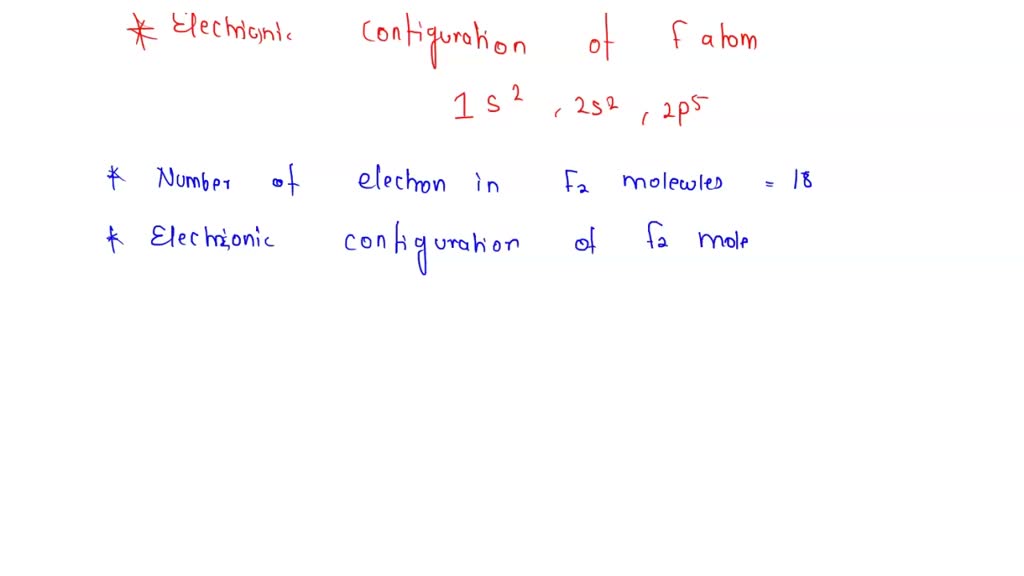 * Electronic configuration of F atom
1s², 2s², 2p⁵
* Number of electron in F₂ molecules = 18
* Electronic configuration of F₂ mole